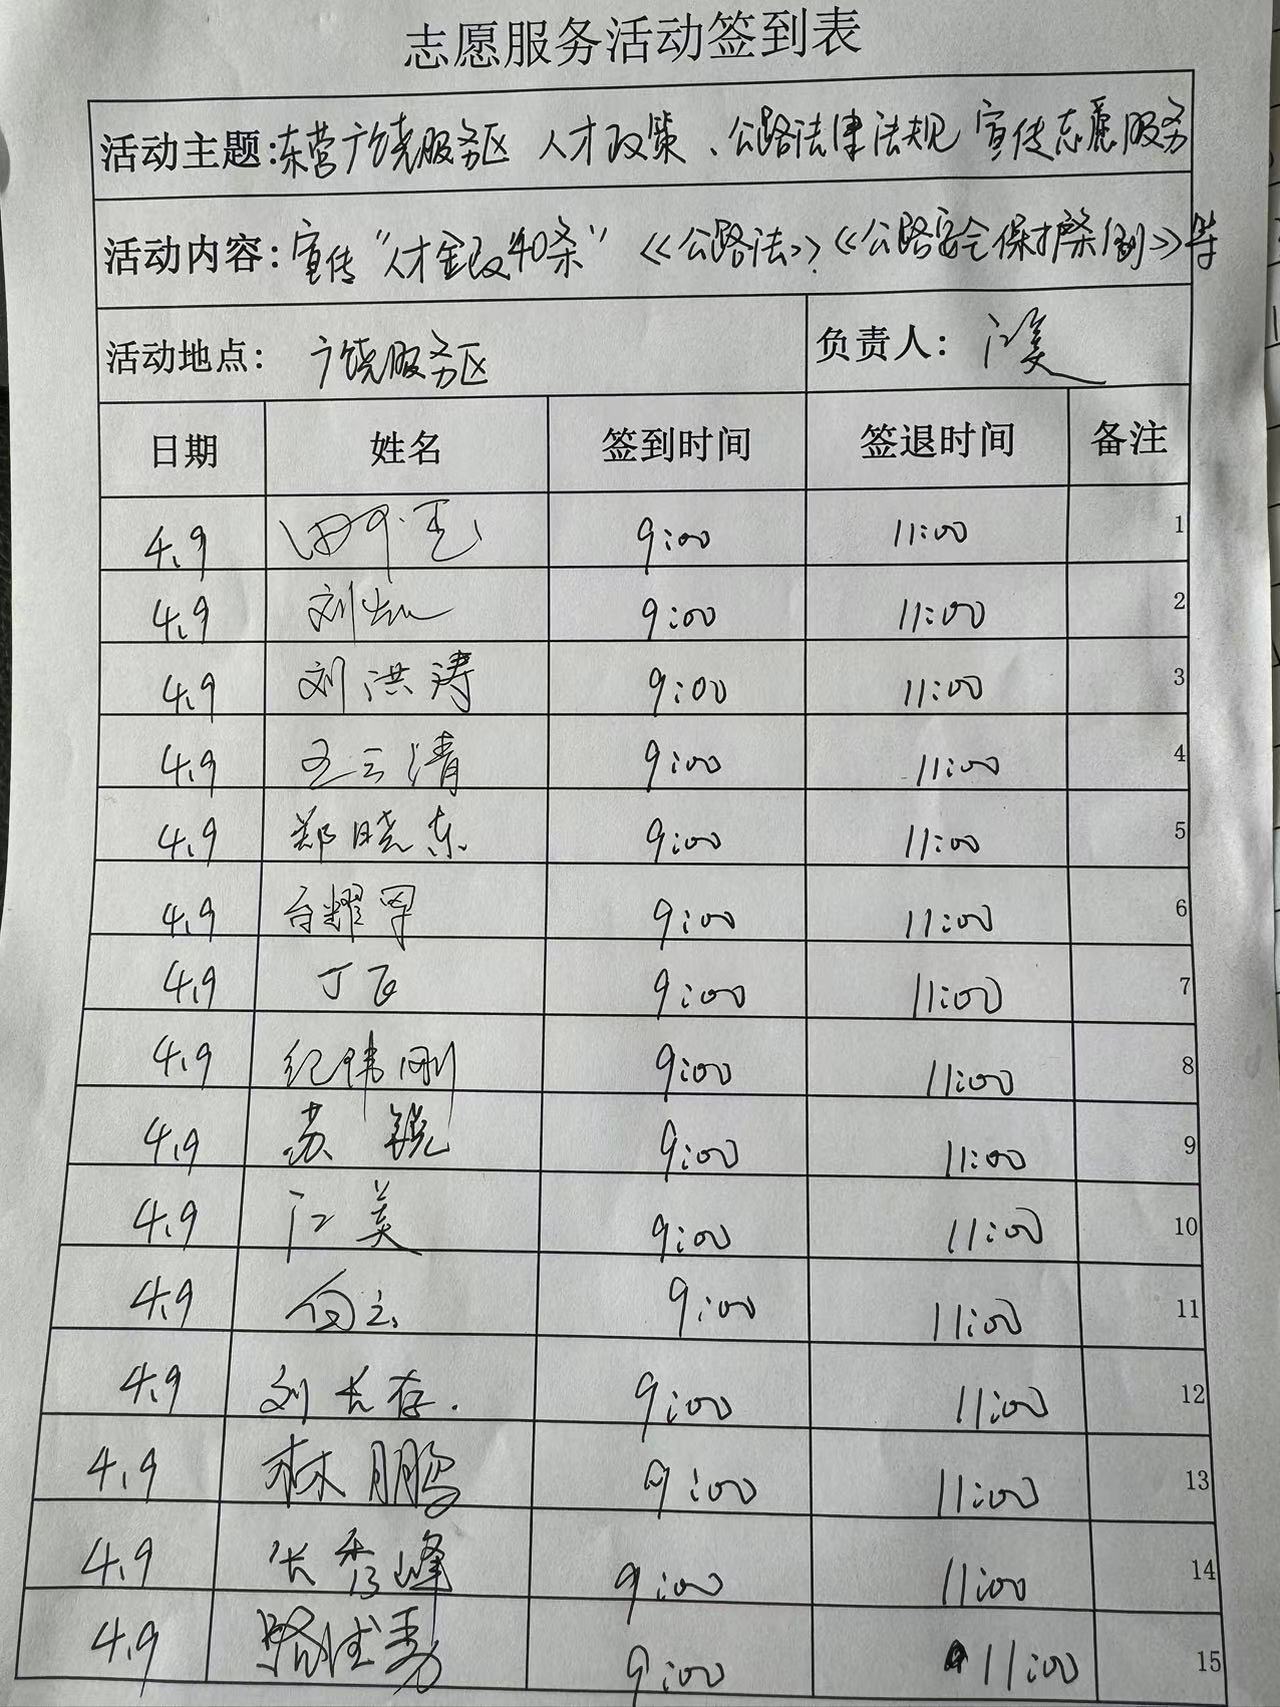 志愿服务活动签到表
活动主题:东营广饶服务区 人才政策、公路法律法规 宣传志愿服务
活动内容:宣传"人才金政40条"《公路法》、《公路安全保护条例》等
活动地点: 广饶服务区 负责人: 江美
日期 姓名 签到时间 签退时间 备注
4.9 9:00 11:00 1
4.9 刘灿 9:00 11:00 2
4.9 刘洪涛 9:00 11:00 3
4.9 王云清 9:00 11:00 4
4.9 郑晓东 9:00 11:00 5
4.9 9:00 11:00 6
4.9 丁飞 9:00 11:00 7
4.9 纪伟刚 9:00 11:00 8
4.9 苏锐 9:00 11:00 9
4.9 江美 9:00 11:00 10
4.9 9:00 11:00 11
4.9 刘长存. 9:00 11:00 12
4.9 林鹏 9:00 11:00 13
4.9 张秀峰 9:00 11:00 14
4.9 9:00 11:00 15